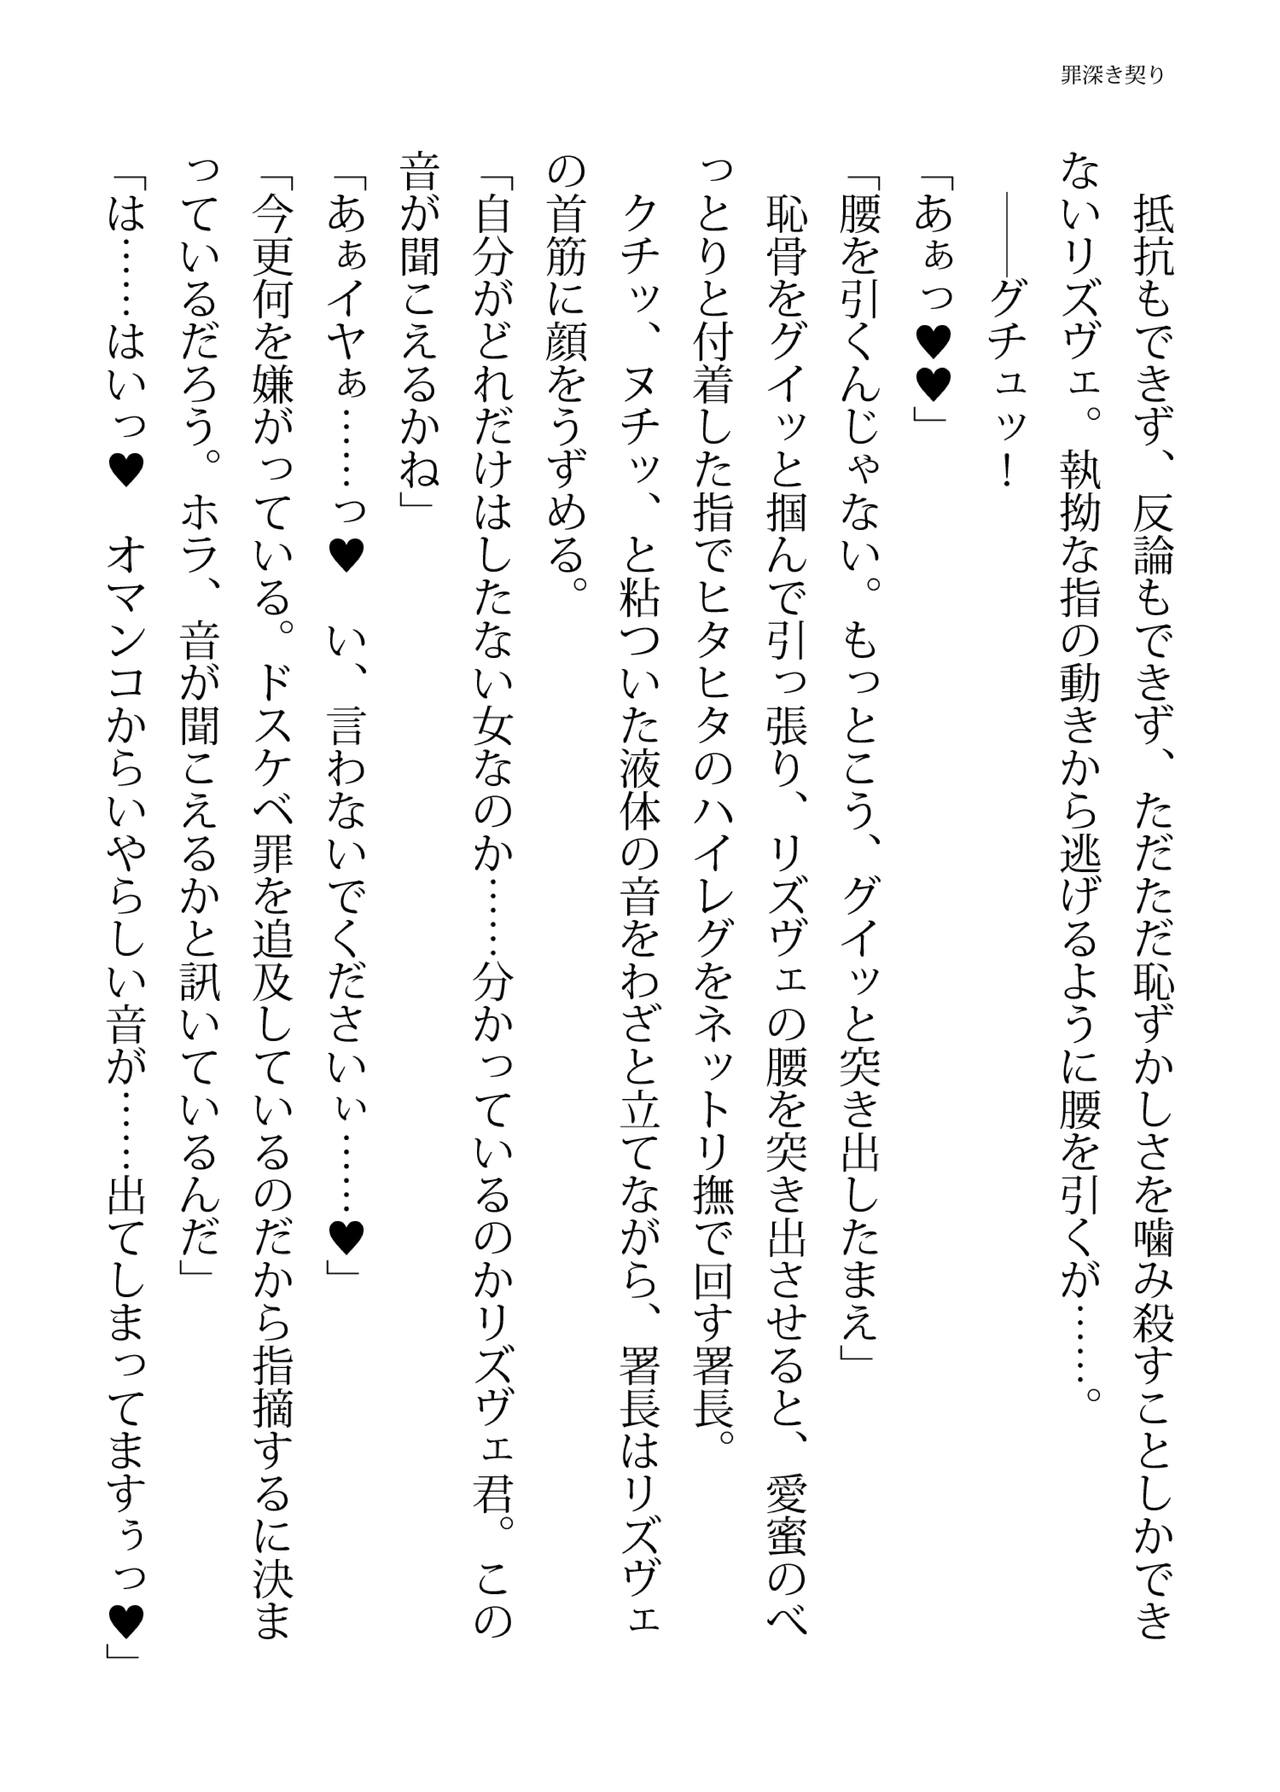 罪深き契り
　抵抗もできず、反論もできず、ただただ恥ずかしさを噛み殺すことしかでき
ないリズヴェ。執拗な指の動きから逃げるように腰を引くが……。
　――グチュッ！
「あぁっ♥♥」
「腰を引くんじゃない。もっとこう、グイッと突き出したまえ」
　恥骨をグイッと掴んで引っ張り、リズヴェの腰を突き出させると、愛蜜のべ
っとりと付着した指でヒタヒタのハイレグをネットリ撫で回す署長。
　クチッ、ヌチッ、と粘ついた液体の音をわざと立てながら、署長はリズヴェ
の首筋に顔をうずめる。
「自分がどれだけはしたない女なのか……分かっているのかリズヴェ君。この
音が聞こえるかね」
「あぁイヤぁ……っ♥　い、言わないでくださいぃ……♥」
「今更何を嫌がっている。ドスケベ罪を追及しているのだから指摘するに決ま
っているだろう。ホラ、音が聞こえるかと訊いているんだ」
「は……はいっ♥　オマンコからいやらしい音が……出てしまってますぅっ♥」